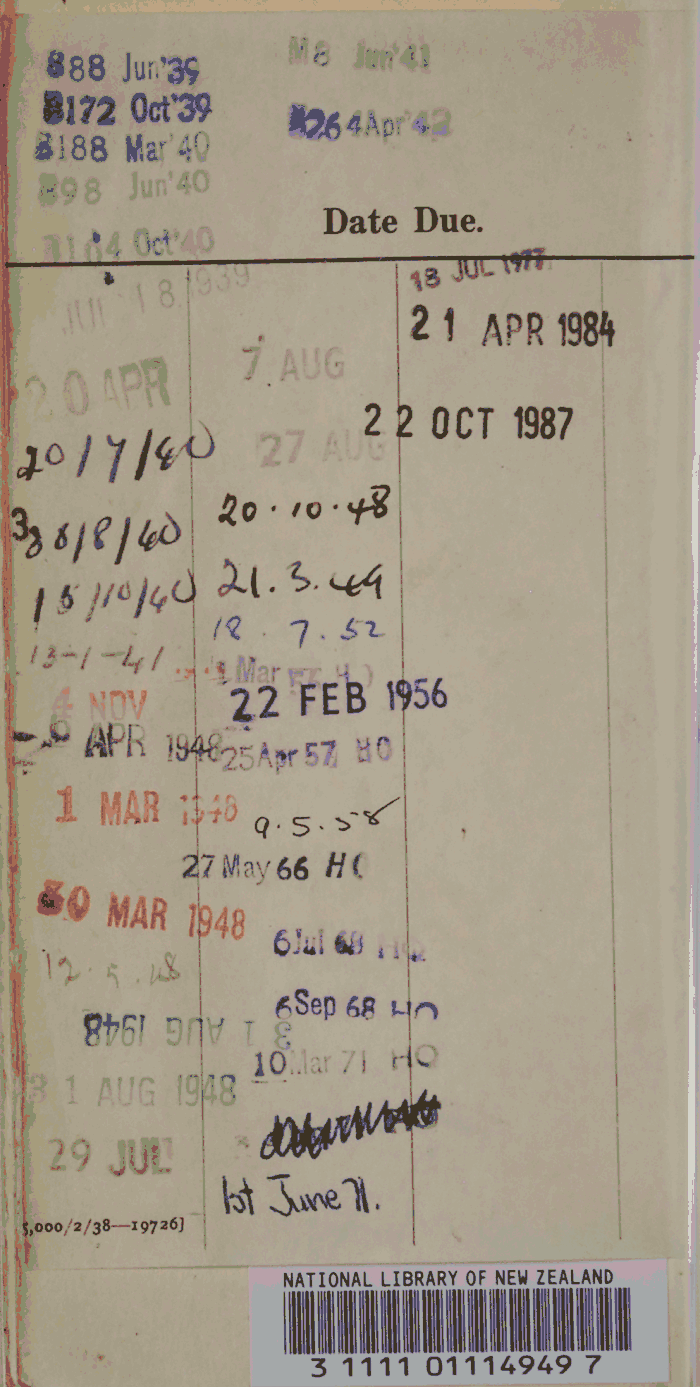 B88 Jun'39
B172 Oct'39
B188 Mar'40
B98 Jun'40
B164 Oct'40
M8 Jun'41
B264 Apr'42
Date Due.
JUL 18 1939
20 APR
20/7/40
8/40
15/10/40
13-1-41
4 NOV
APR 1948
1 MAR 1948
30 MAR 1948
12.5.48
31 AUG 1948
31 AUG 1948
29 JUL
7 AUG
27 AUG
20.10.48
21.3.49
18.7.52
Mar
22 FEB 1956
25 Apr 57 HO
9.5.58
27 May 66 H
6 Jul 68 HO
6 Sep 68 HO
10 Mar 71 HO
1st June 71.
18 JUL 1977
21 APR 1984
22 OCT 1987
5,000/2/38—19726]
NATIONAL LIBRARY OF NEW ZEALAND
3 1111 01114949 7